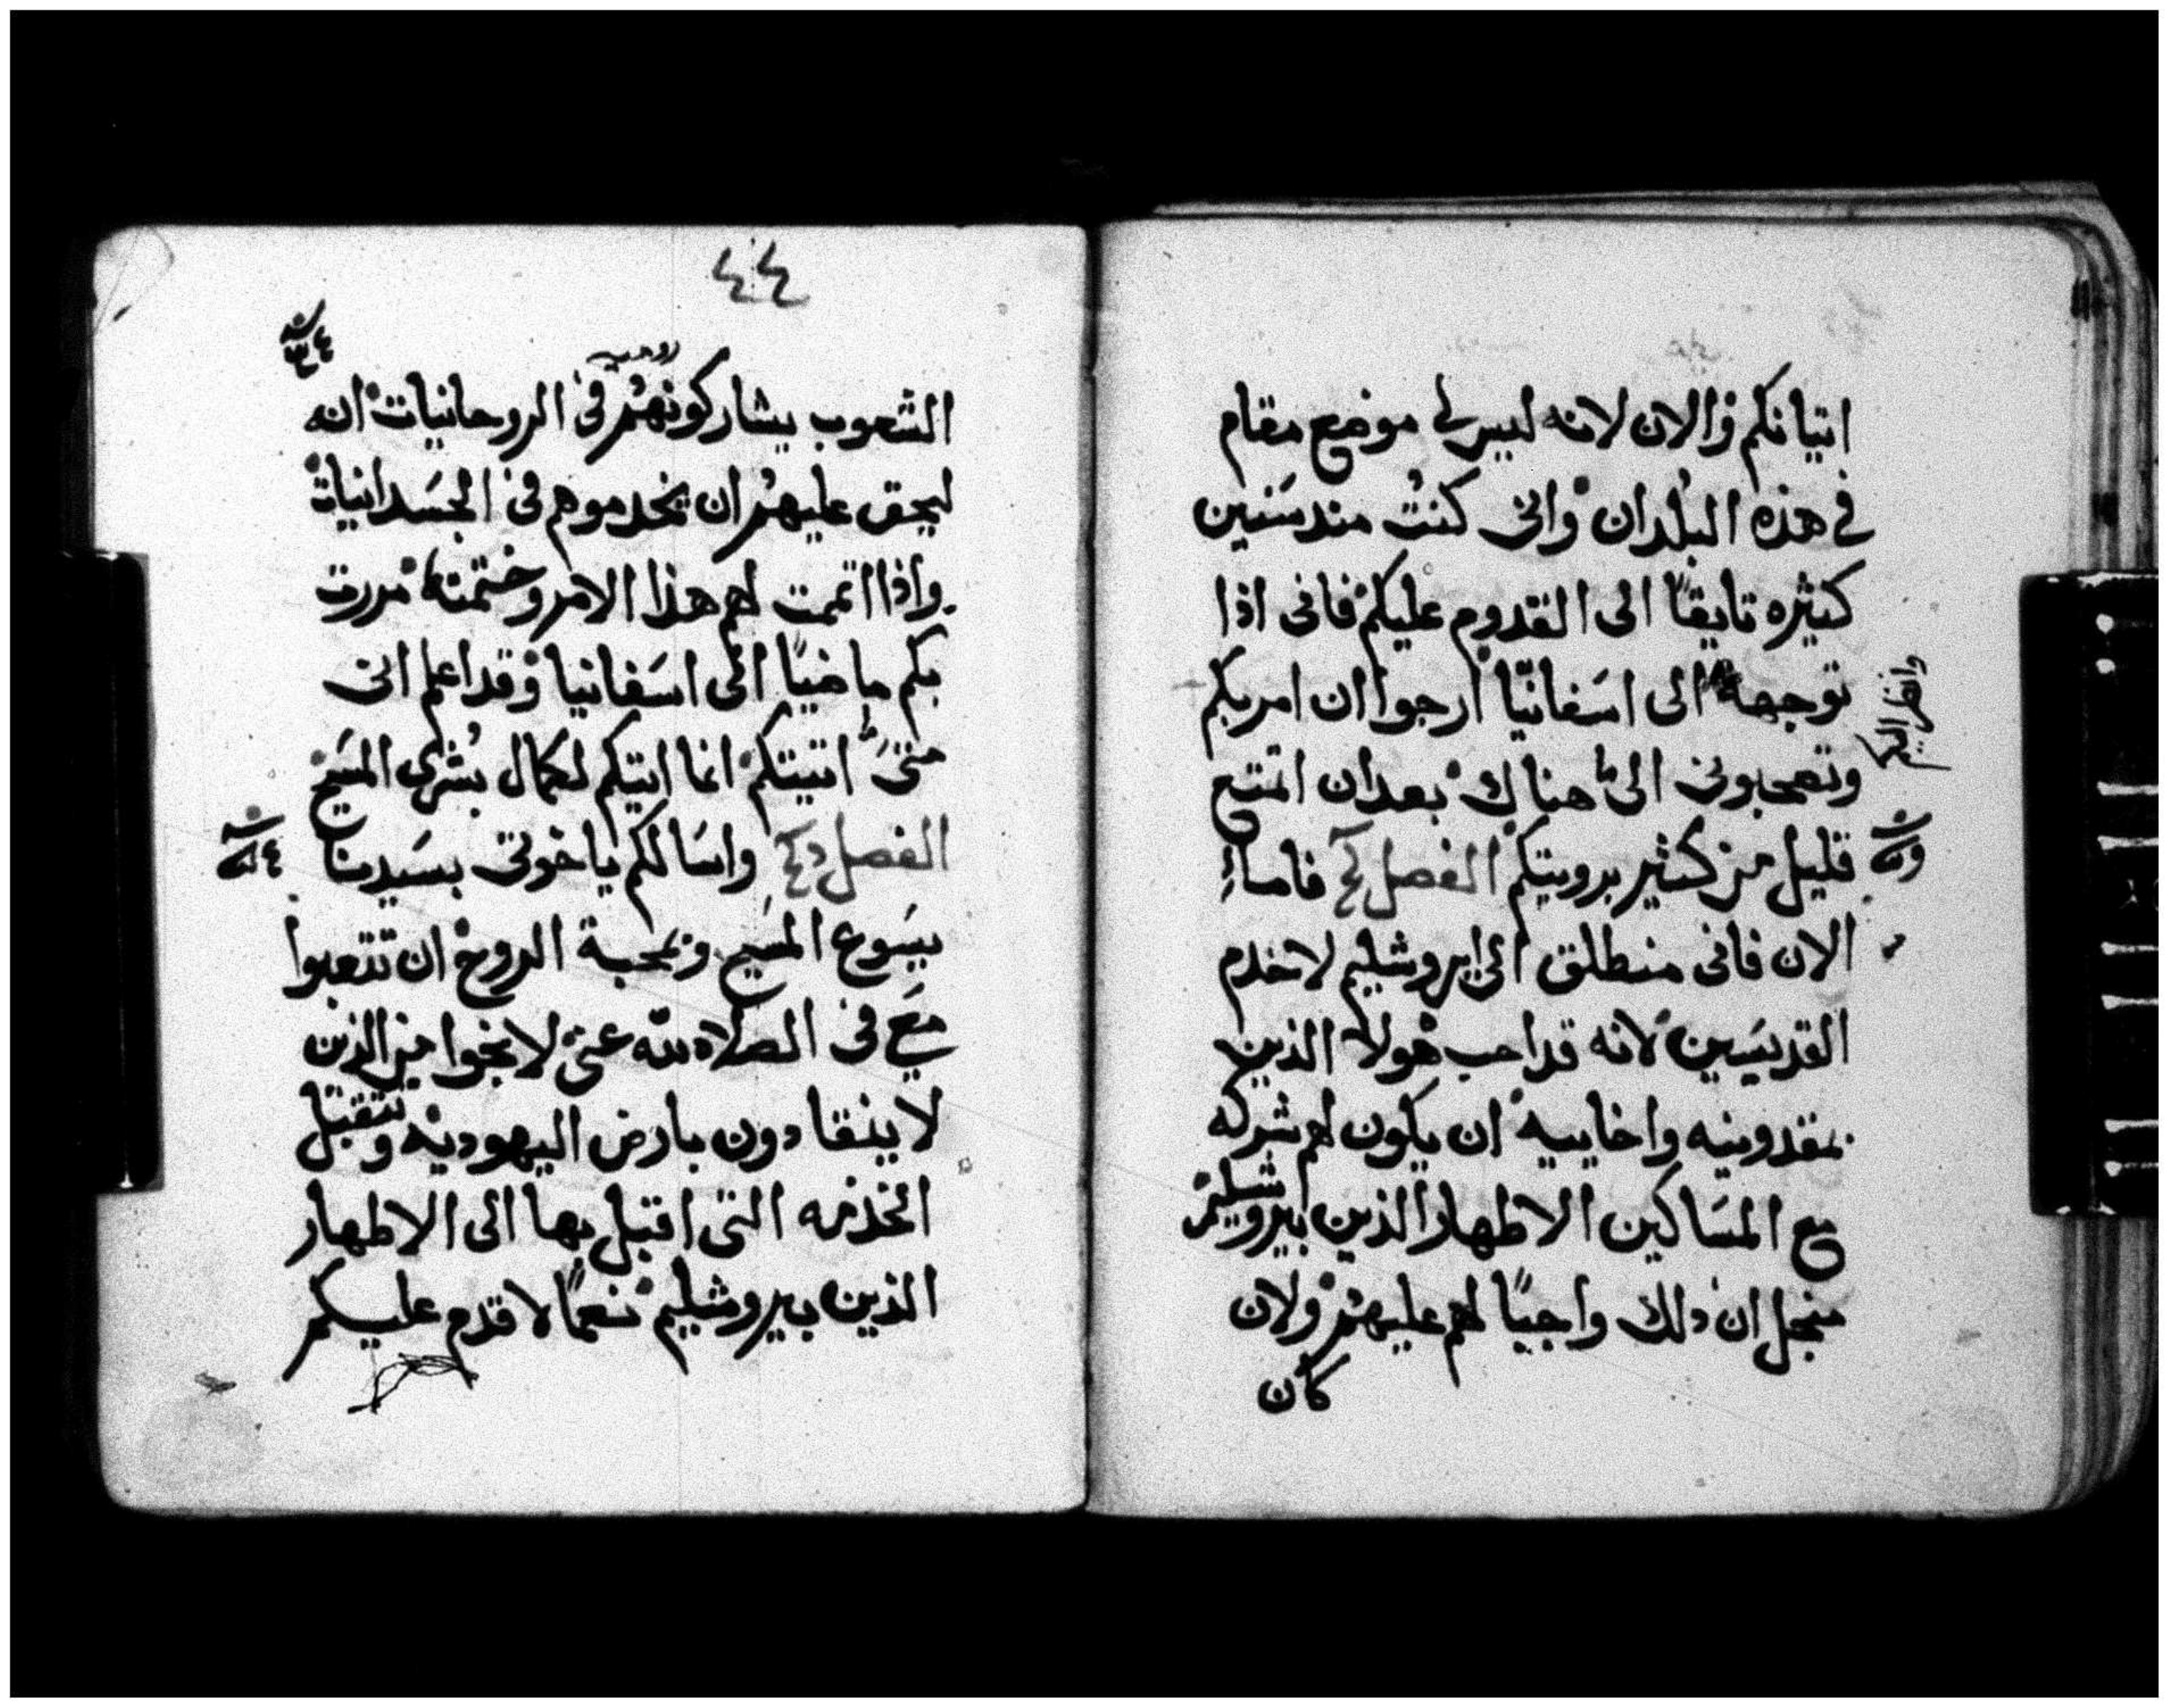 اتيانكم والان لانه ليس لى موضع مقام
فى هذه البلدان وانى كنت منذ سنين
كثيره تايقًا الى القدوم عليكم فانى اذا
توجهة الى اسفانيا ارجوا ان امر بكم
وانظر اليكم
وتصحبونى الى هناك بعد ان اتمتع
قليل من كثير برويتكم الفصل فاما
الان فانى منطلق الى ايروشليم لاخدم
القديسين لانه قد احب هولا الذين
بمقدونيه واخاييه ان يكون لهم شركه
مع المساكين الاطهار الذين بيروشليم
منجل ان ذلك واجبًا لهم عليهم ولان
كان
٤٤
الشعوب يشاركونهم فى الروحانيات انه
ليحق عليهم ان يخدموهم فى الجسدانيات
واذا اتممت لهم هذا الامر وختمته مررت
بكم ماضيًا الى اسفانيا وقد اعلم انى
متى اتيتكم انما اتيكم لكمال بشرى المسيح
الفصل واسالكم ياخوتى بسيدنا
يسوع المسيح وبمحبة الروح ان تتعبوا
معى فى الصلاه لله عنى لانجوا من الذين
لا ينقادون بارض اليهوديه وتتقبل
الخدمه التى اقبل بها الى الاطهار
الذين بيروشليم نعمًا لاقدم عليكم